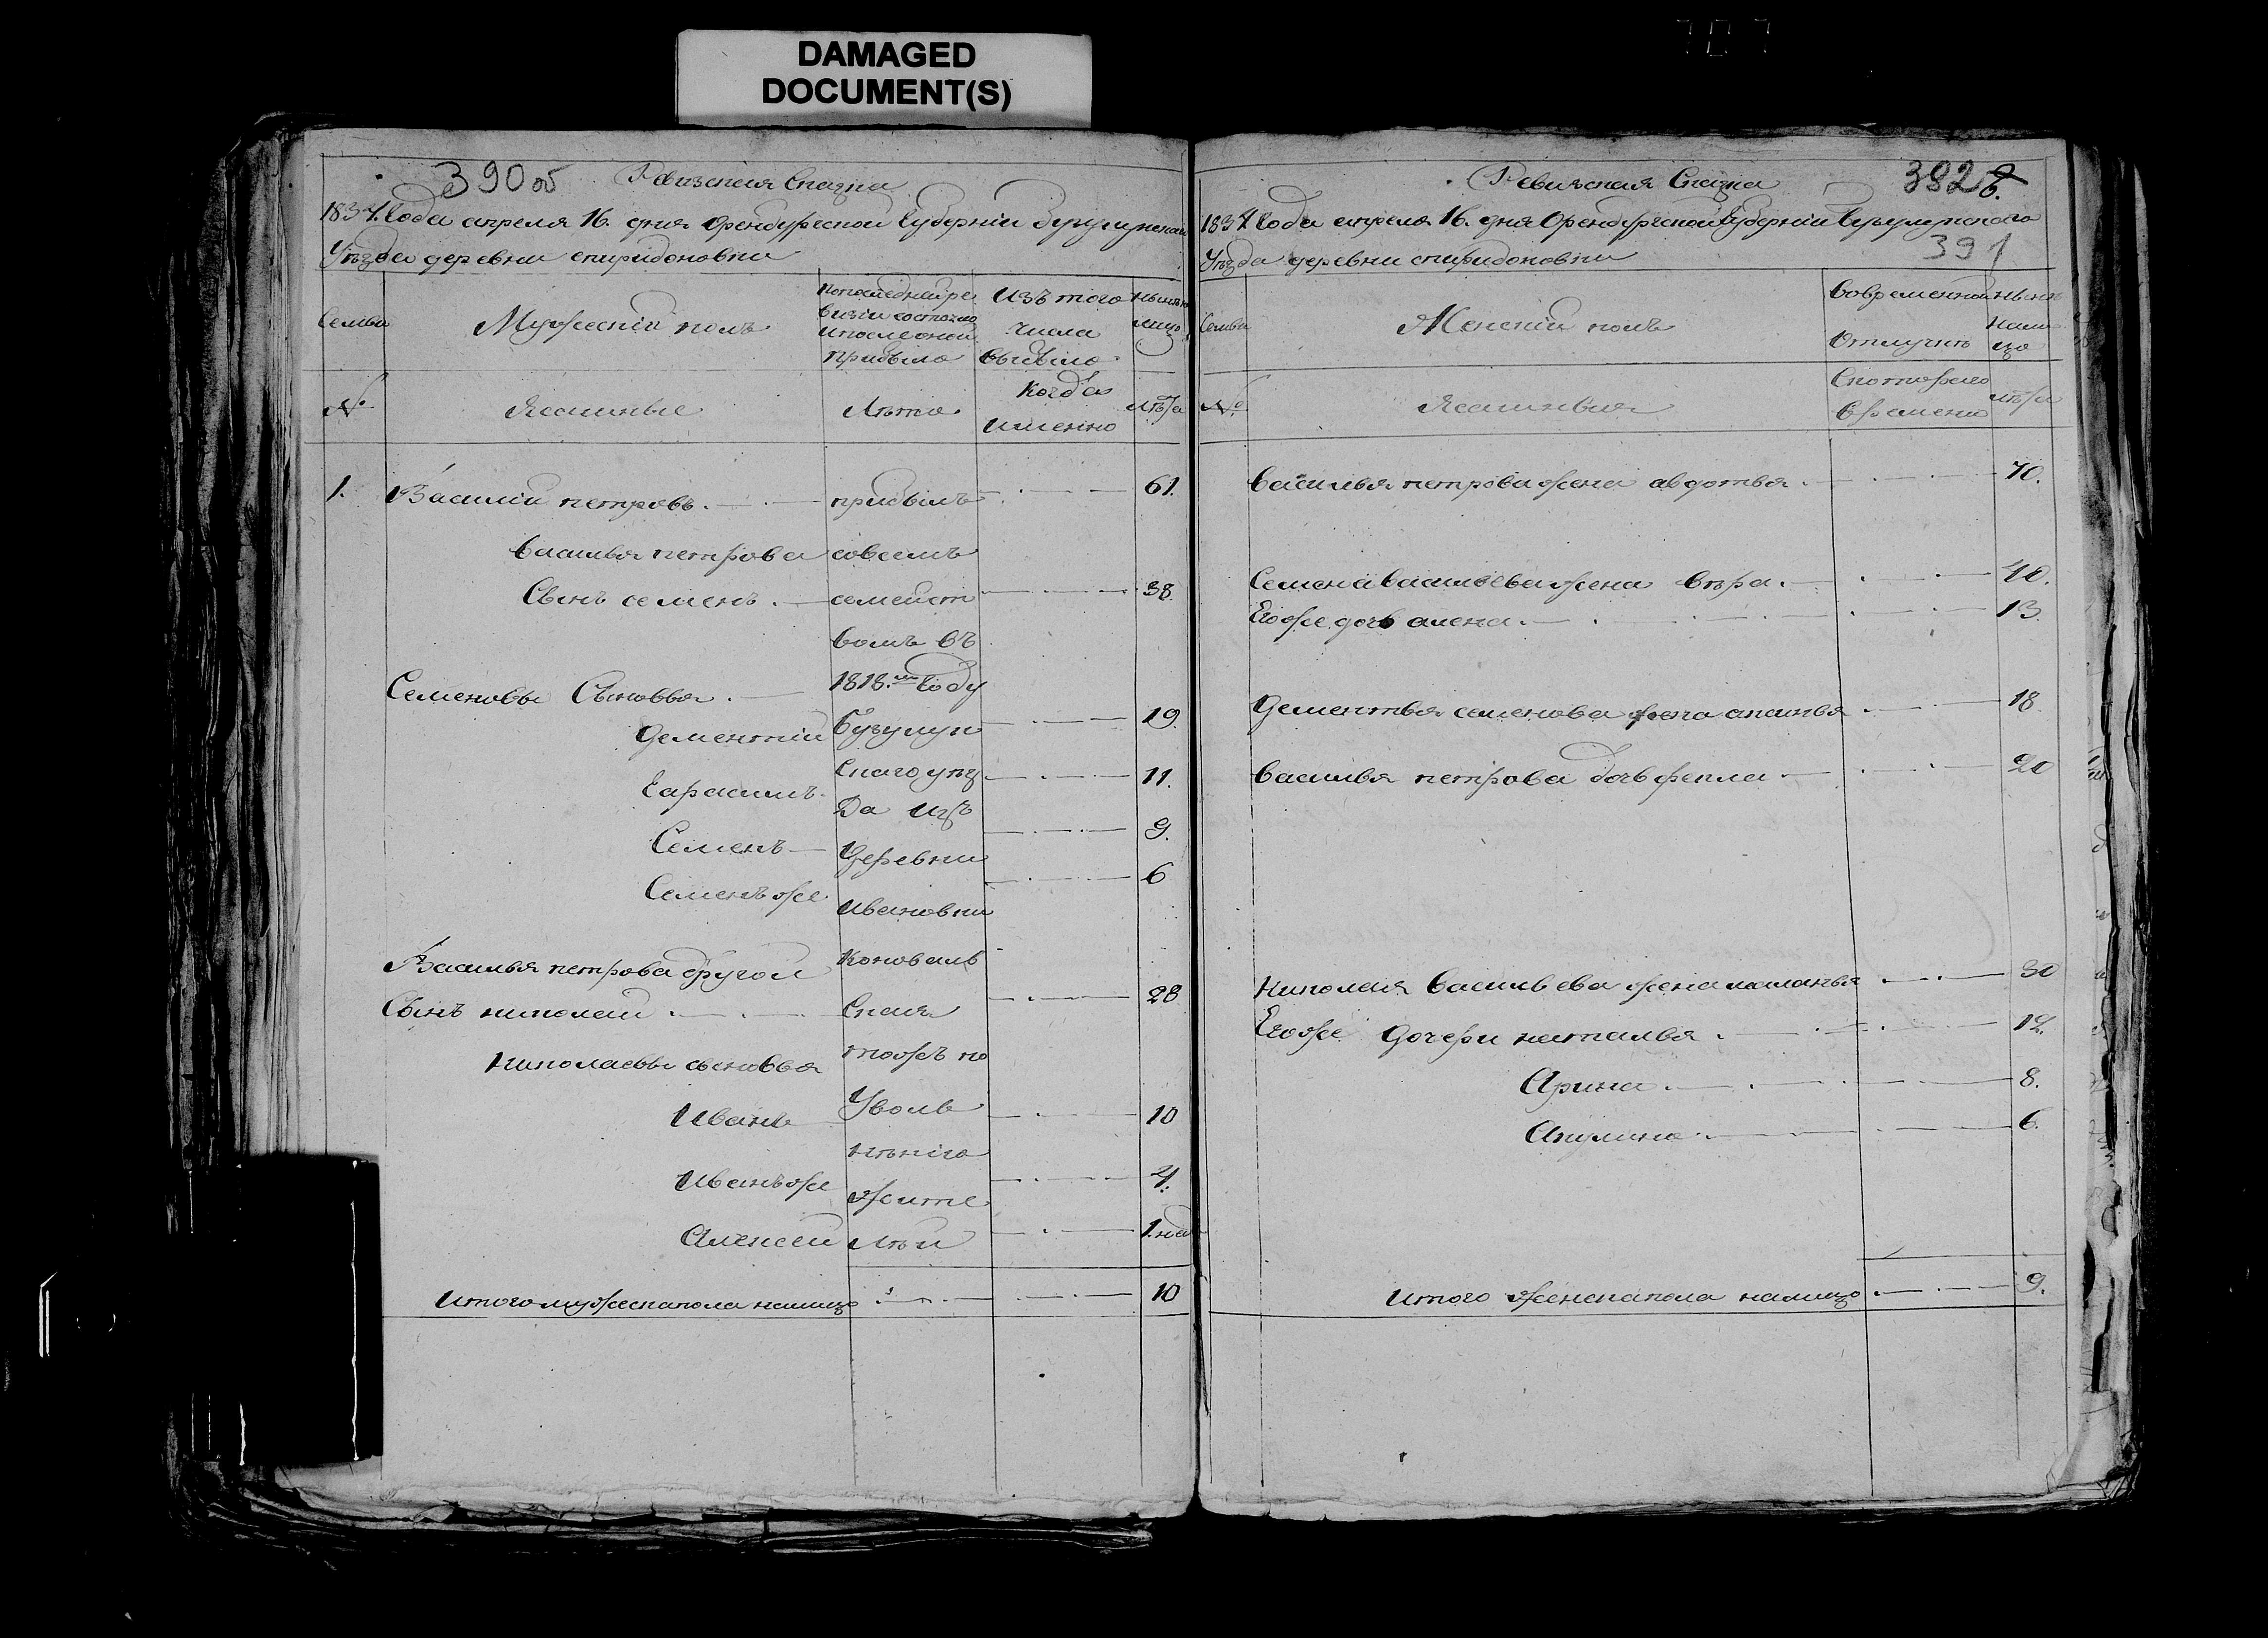 DAMAGED
DOCUMENT(S)
390 об
Ревизская Сказка
1834. Года апреля 16. дня Оренбургской Губернии бугулминскаго
Уезда деревни спиридоновки
Семьи
Мужеский полъ
По последней ре
визии состояло
и после оной
прибыло
Изъ того
числа
выбыло
ныне на
лицо
№
Ясашные
Лета
Когда
именно
лета
1. Василий петровъ. прибылъ 61.
Василья петрова совсемъ
Сынъ семенъ. семейст 38.
вомъ въ
Семеновы Сыновья. 1818.м Году
Дементий Бугулмин 19.
Гарасимъ. Скаго уез 11.
да изъ
Семенъ Деревни 9.
Семенъ же Ивановки 6
Василья петрова другой Коноваль
Сынъ николай. Ская 28
Николаевы сыновья тожъ по
Иванъ Уволь 10
нению
Иванъ же жите 4.
Алексей лей 1. год
Итого мужеска пола налицо 10
Ревизская Сказка
392
391
1834. Года апреля 16. дня Оренбургской Губернии Бугулминскаго
Уезда деревни спиридоновки
Семьи
Женский полъ
Во временной
Отлучке
ныне
нали
цо
№
Ясашныя
Скотораго
Времени
лета
Василья петрова жена авдотья. 70.
Семена Васильева жена вера. 40.
Его же дочь алена. 13.
Дементья семенова жена 18.
Василья петрова дочь фекла 20
Николая Васильева жена маланья 30
Его же Дочери наталья. 12.
Арина. 8.
Акулина. 6.
Итого женска пола налицо 9.